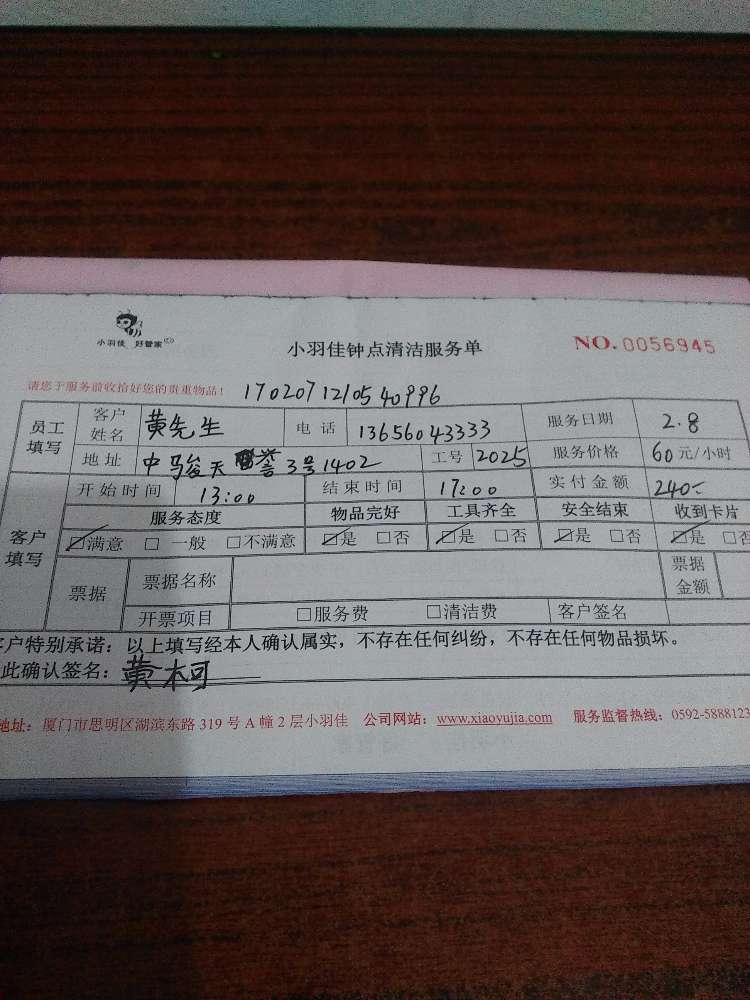 小羽佳 好管家
小羽佳钟点清洁服务单
NO.0056945
请您于服务前收拾好您的贵重物品！ 1702071210540996
员工填写 客户姓名 黄先生 电话 13656043333 服务日期 2.8
地址 中骏天誉3号1402 工号 2025 服务价格 60元/小时
客户填写 开始时间 13:00 结束时间 17:00 实付金额 240-
服务态度 物品完好 工具齐全 安全结束 收到卡片
☑满意 □一般 □不满意 ☑是 □否 ☑是 □否 ☑是 □否 ☑是 □否
票据 票据名称 票据金额
开票项目 □服务费 □清洁费 客户签名
客户特别承诺：以上填写经本人确认属实，不存在任何纠纷，不存在任何物品损坏。
此确认签名：黄柯
地址：厦门市思明区湖滨东路319号A幢2层小羽佳 公司网站：www.xiaoyujia.com 服务监督热线：0592-5888123